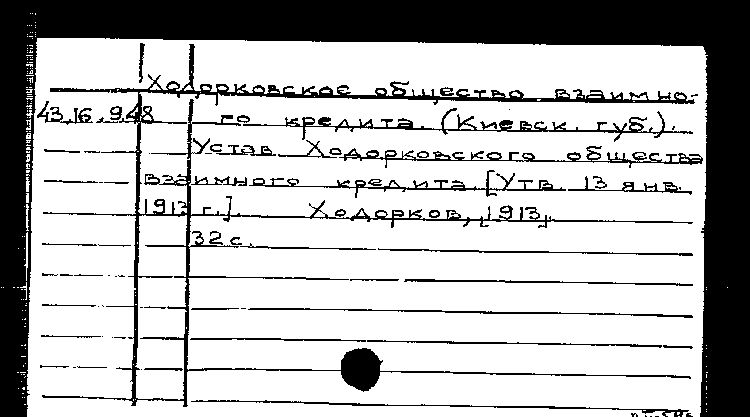 Ходорковское общество взаимно-
43.16.948 го кредита. (Киевск. губ.).
Устав Ходорковского общества
взаимного кредита. [Утв. 13 янв.
1913 г.]. Ходорков, [1913].
32 с.